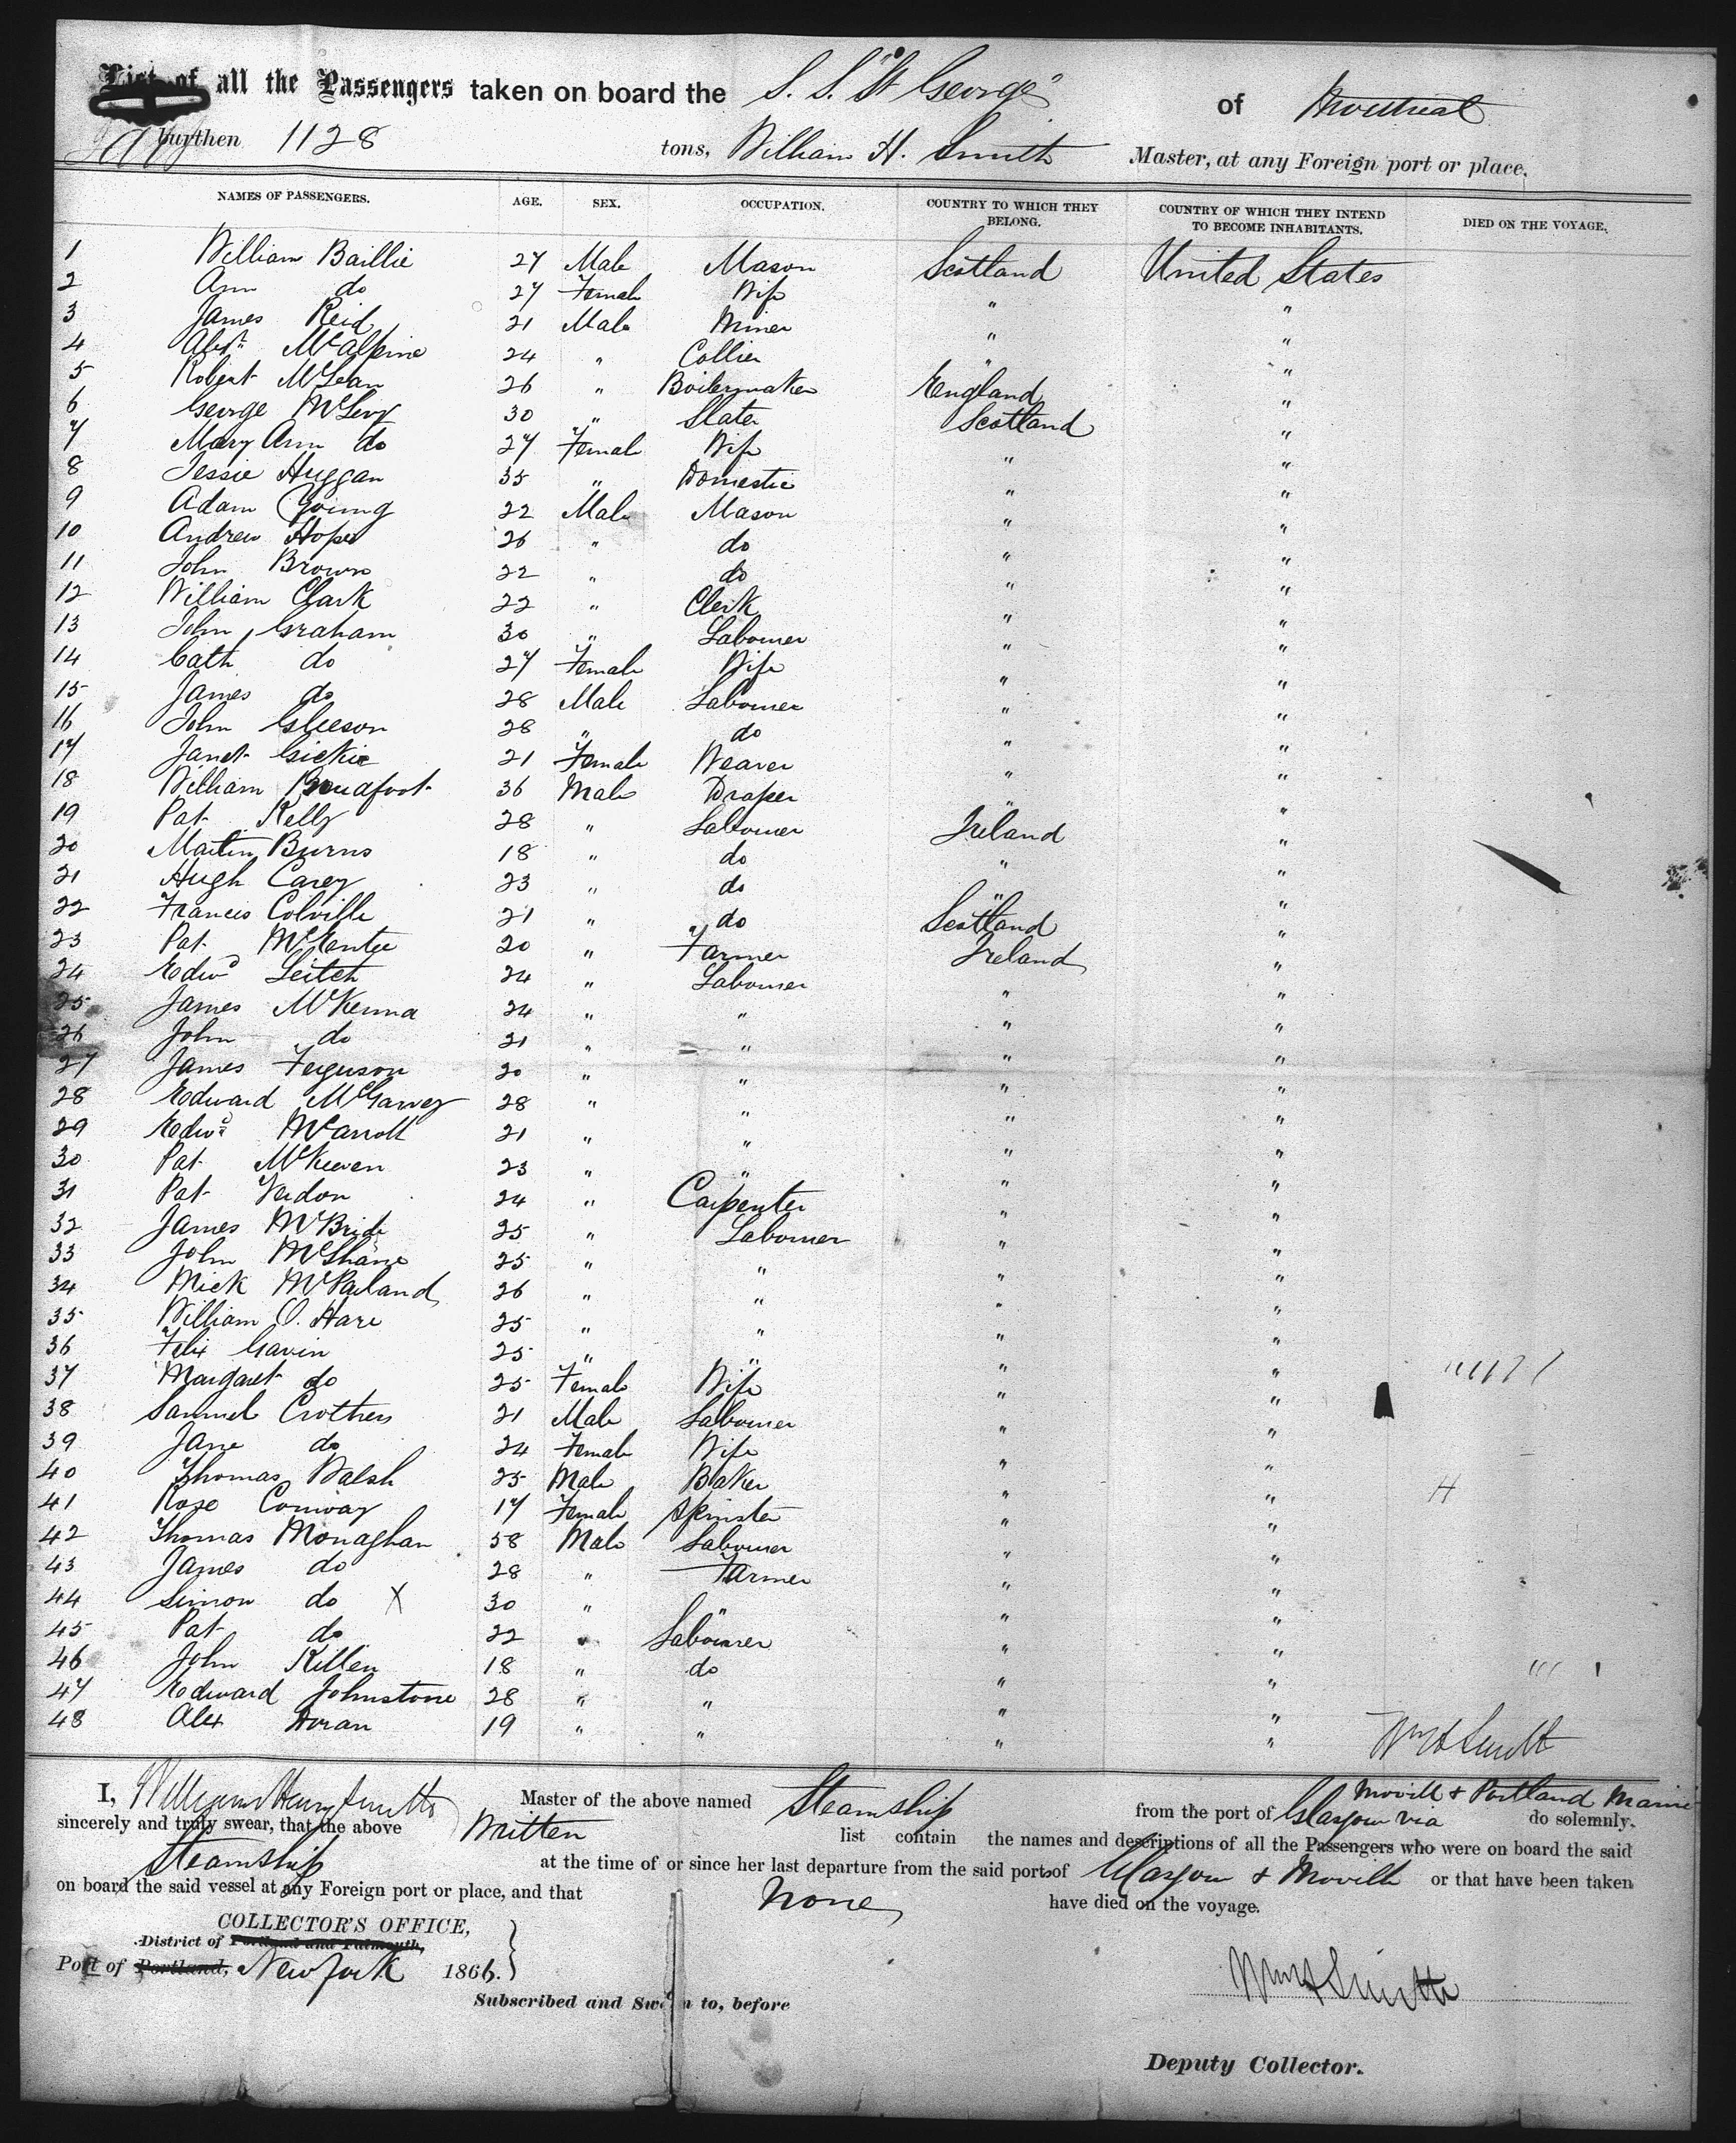 List of all the Passengers taken on board the S. S. "St George" of Montreal
burthen 1128 tons, William H. Smith Master, at any Foreign port or place.
NAMES OF PASSENGERS. AGE. SEX. OCCUPATION. COUNTRY TO WHICH THEY BELONG. COUNTRY OF WHICH THEY INTEND TO BECOME INHABITANTS. DIED ON THE VOYAGE.
1 William Baillie 27 Male Mason Scotland United States
2 Ann do 27 Female Wife " "
3 James Reid 21 Male Miner " "
4 Alexr McAlpine 24 " Collier " "
5 Robert McLean 26 " Boilermaker England "
6 George McLevy 30 " Slater Scotland "
7 Mary Ann do 27 Female Wife " "
8 Jessie Huggan 35 " Domestic " "
9 Adam Young 22 Male Mason " "
10 Andrew Hope 26 " do " "
11 John Brown 22 " do " "
12 William Clark 22 " Clerk " "
13 John Graham 30 " Labourer " "
14 Cath do 27 Female Wife " "
15 James do 28 Male Labourer " "
16 John Gleeson 28 " do " "
17 Janet Gickie 21 Female Weaver " "
18 William Proudfoot 36 Male Draper " "
19 Pat Kelly 28 " Labourer Ireland "
20 Martin Burns 18 " do " "
21 Hugh Carey 23 " do " "
22 Francis Colville 21 " do Scotland "
23 Pat McEntee 20 " Farmer Ireland "
24 Edwd Leitch 24 " Labourer " "
25 James McKenna 24 " " " "
26 John do 21 " " " "
27 James Ferguson 20 " " " "
28 Edward McGarvey 28 " " " "
29 Edwd McArroll 21 " " " "
30 Pat McKeeven 23 " " " "
31 Pat Verdon 24 " Carpenter " "
32 James McBride 25 " Labourer " "
33 John McShane 25 " " " "
34 Mick McParland 26 " " " "
35 William O. Hare 25 " " " "
36 Felix Gavin 25 " " " "
37 Margaret do 25 Female Wife " "
38 Samuel Crothers 21 Male Labourer " "
39 Jane do 24 Female Wife " "
40 Thomas Walsh 25 Male Baker " "
41 Rose Conway 17 Female Spinster " " H
42 Thomas Monaghan 58 Male Labourer " "
43 James do 28 " Farmer " "
44 Simon do X 30 " " " "
45 Pat do 22 " Labourer " "
46 John Killen 18 " do " "
47 Edward Johnstone 28 " " " "
48 Alex Horan 19 " " " " Wm H Smith
I, William Henry Smith Master of the above named Steamship from the port of Glasgow via Moville & Portland Maine do solemnly,
sincerely and truly swear, that the above Written list contain the names and descriptions of all the Passengers who were on board the said
Steamship at the time of or since her last departure from the said ports of Glasgow & Moville or that have been taken
on board the said vessel at any Foreign port or place, and that None have died on the voyage.
COLLECTOR'S OFFICE,
District of Portland and Falmouth,
Port of Portland, New York 1866.
Wm H Smith
Subscribed and Sworn to, before
Deputy Collector.